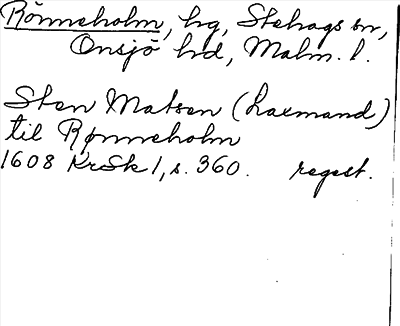 Rönneholm, hg, Stehags sn,
Onsjö hd, Malm. l.
Sten Matsen (Laxmand)
til Rønneholm
1608 KrSk 1, s. 360. regest.